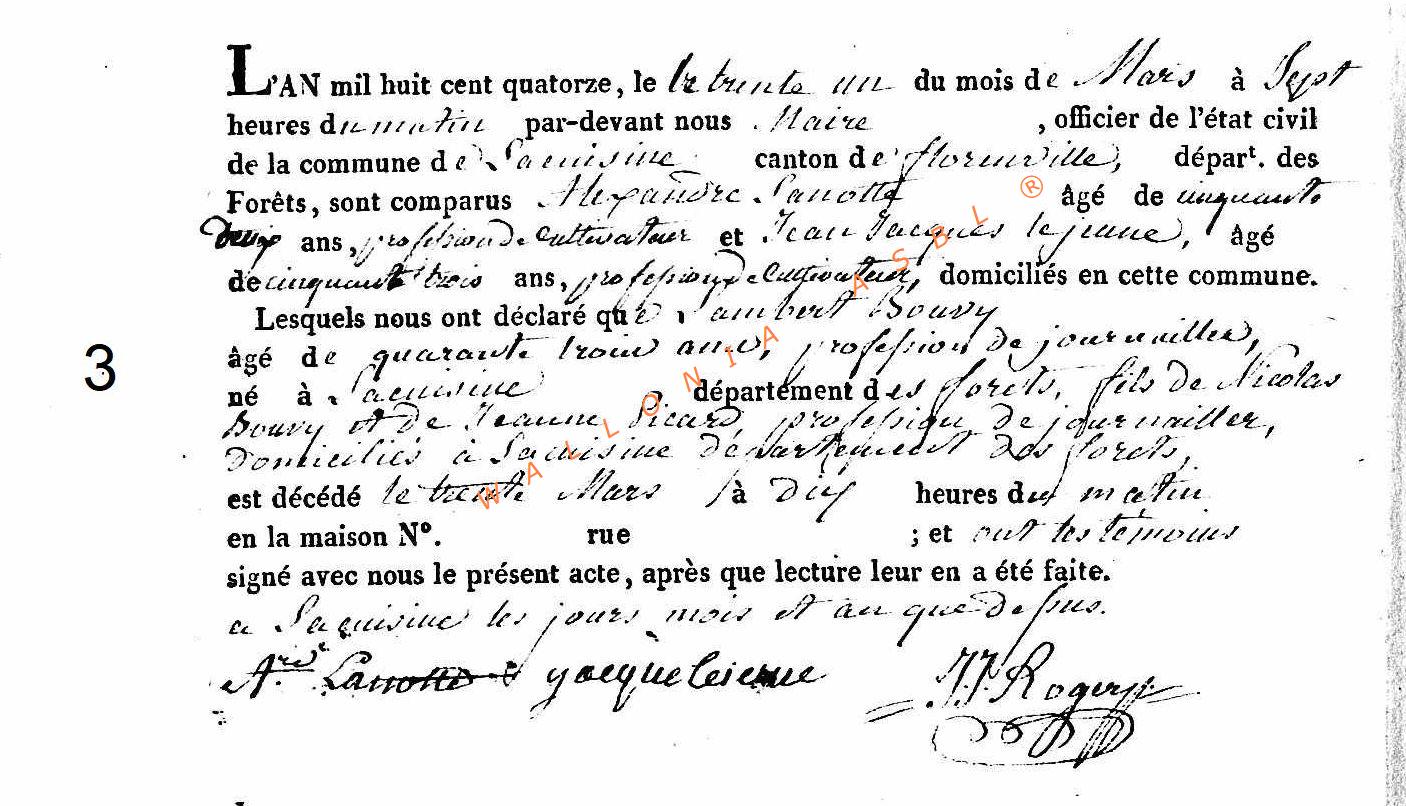 L'AN mil huit cent quatorze, le le trente un du mois de Mars à Sept
heures du matin par-devant nous Maire , officier de l'état civil
de la commune de Lacuisine canton de florenville, départ. des
Forêts, sont comparus Alexandre Lanotte âgé de cinquante
deux ans, profession de Cultivateur et Jean Jacques lejeune, âgé
de cinquante trois ans, profession de Cultivateur, domiciliés en cette commune.
Lesquels nous ont déclaré que Lambert Bouvy
3
âgé de quarante trois ans, profession de journailler,
né à Lacuisine département des forets, fils de Nicolas
Bouvy et de Jeanne Picard, profession de journailler,
domiciliés à Lacuisine département des forets,
est décédé le trente Mars à dix heures du matin
en la maison N°. rue ; et ont les témoins
signé avec nous le présent acte, après que lecture leur en a été faite.
a Lacuisine les jours mois et an que dessus.
A.re Lanotte yacque leieune J.J. Roger
WALLONIA ASBL ®